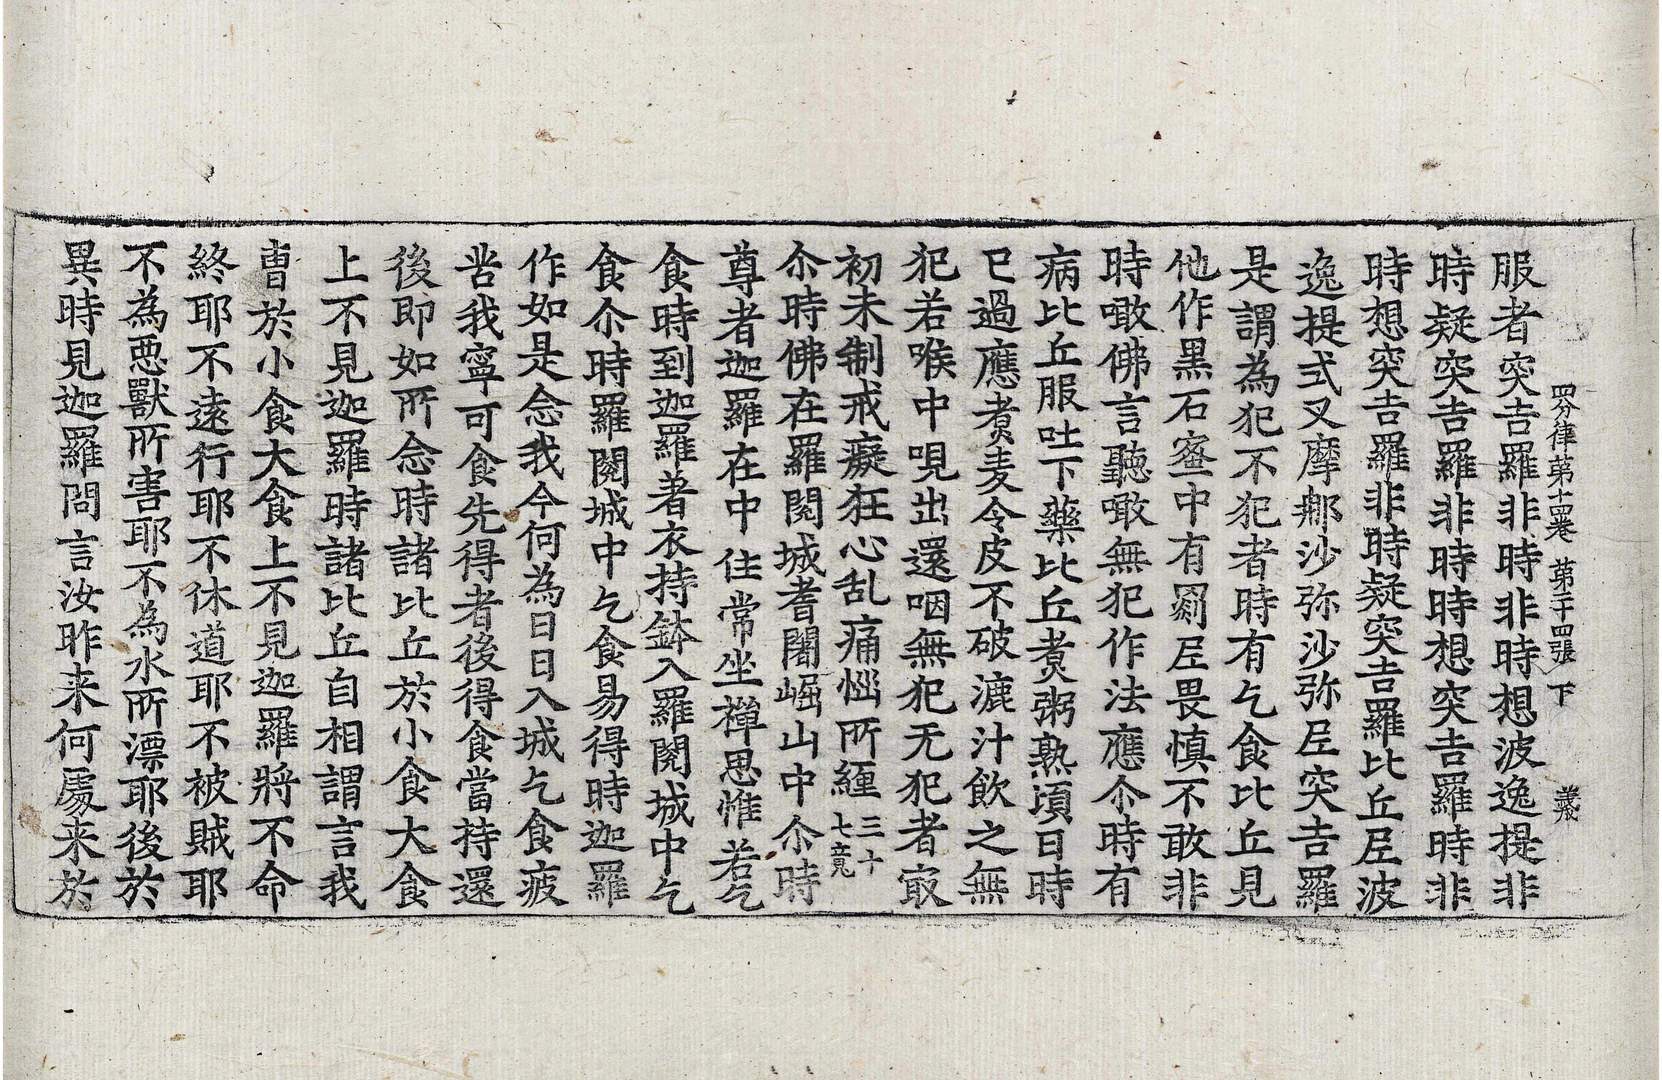 四分律第十四卷 第二十四張 下 義
服者突吉羅非時非時想波逸提非
時疑突吉羅非時時想突吉羅時非
時想突吉羅非時疑突吉羅比丘尼波
逸提式叉摩那沙弥沙弥尼突吉羅
是謂為犯不犯者時有乞食比丘見
他作黑石蜜中有罽尼畏慎不敢非
時噉佛言聽噉無犯作法應尒時有
病比丘服吐下藥比丘煮粥熟頃日時
已過應煮麦令皮不破漉汁飲之無
犯若喉中哯出還咽無犯无犯者㝡
初未制戒癡狂心乱痛惱所纏三十七竟
尒時佛在羅閱城耆闍崛山中尒時
尊者迦羅在中住常坐禪思惟若乞
食時到迦羅著衣持鉢入羅閱城中乞
食尒時羅閱城中乞食易得時迦羅
作如是念我今何為日日入城乞食疲
苦我寧可食先得者後得食當持還
後即如所念時諸比丘於小食大食
上不見迦羅時諸比丘自相謂言我
曹於小食大食上不見迦羅將不命
終耶不遠行耶不休道耶不被賊耶
不為惡獸所害耶不為水所漂耶後於
異時見迦羅問言汝昨来何處来於